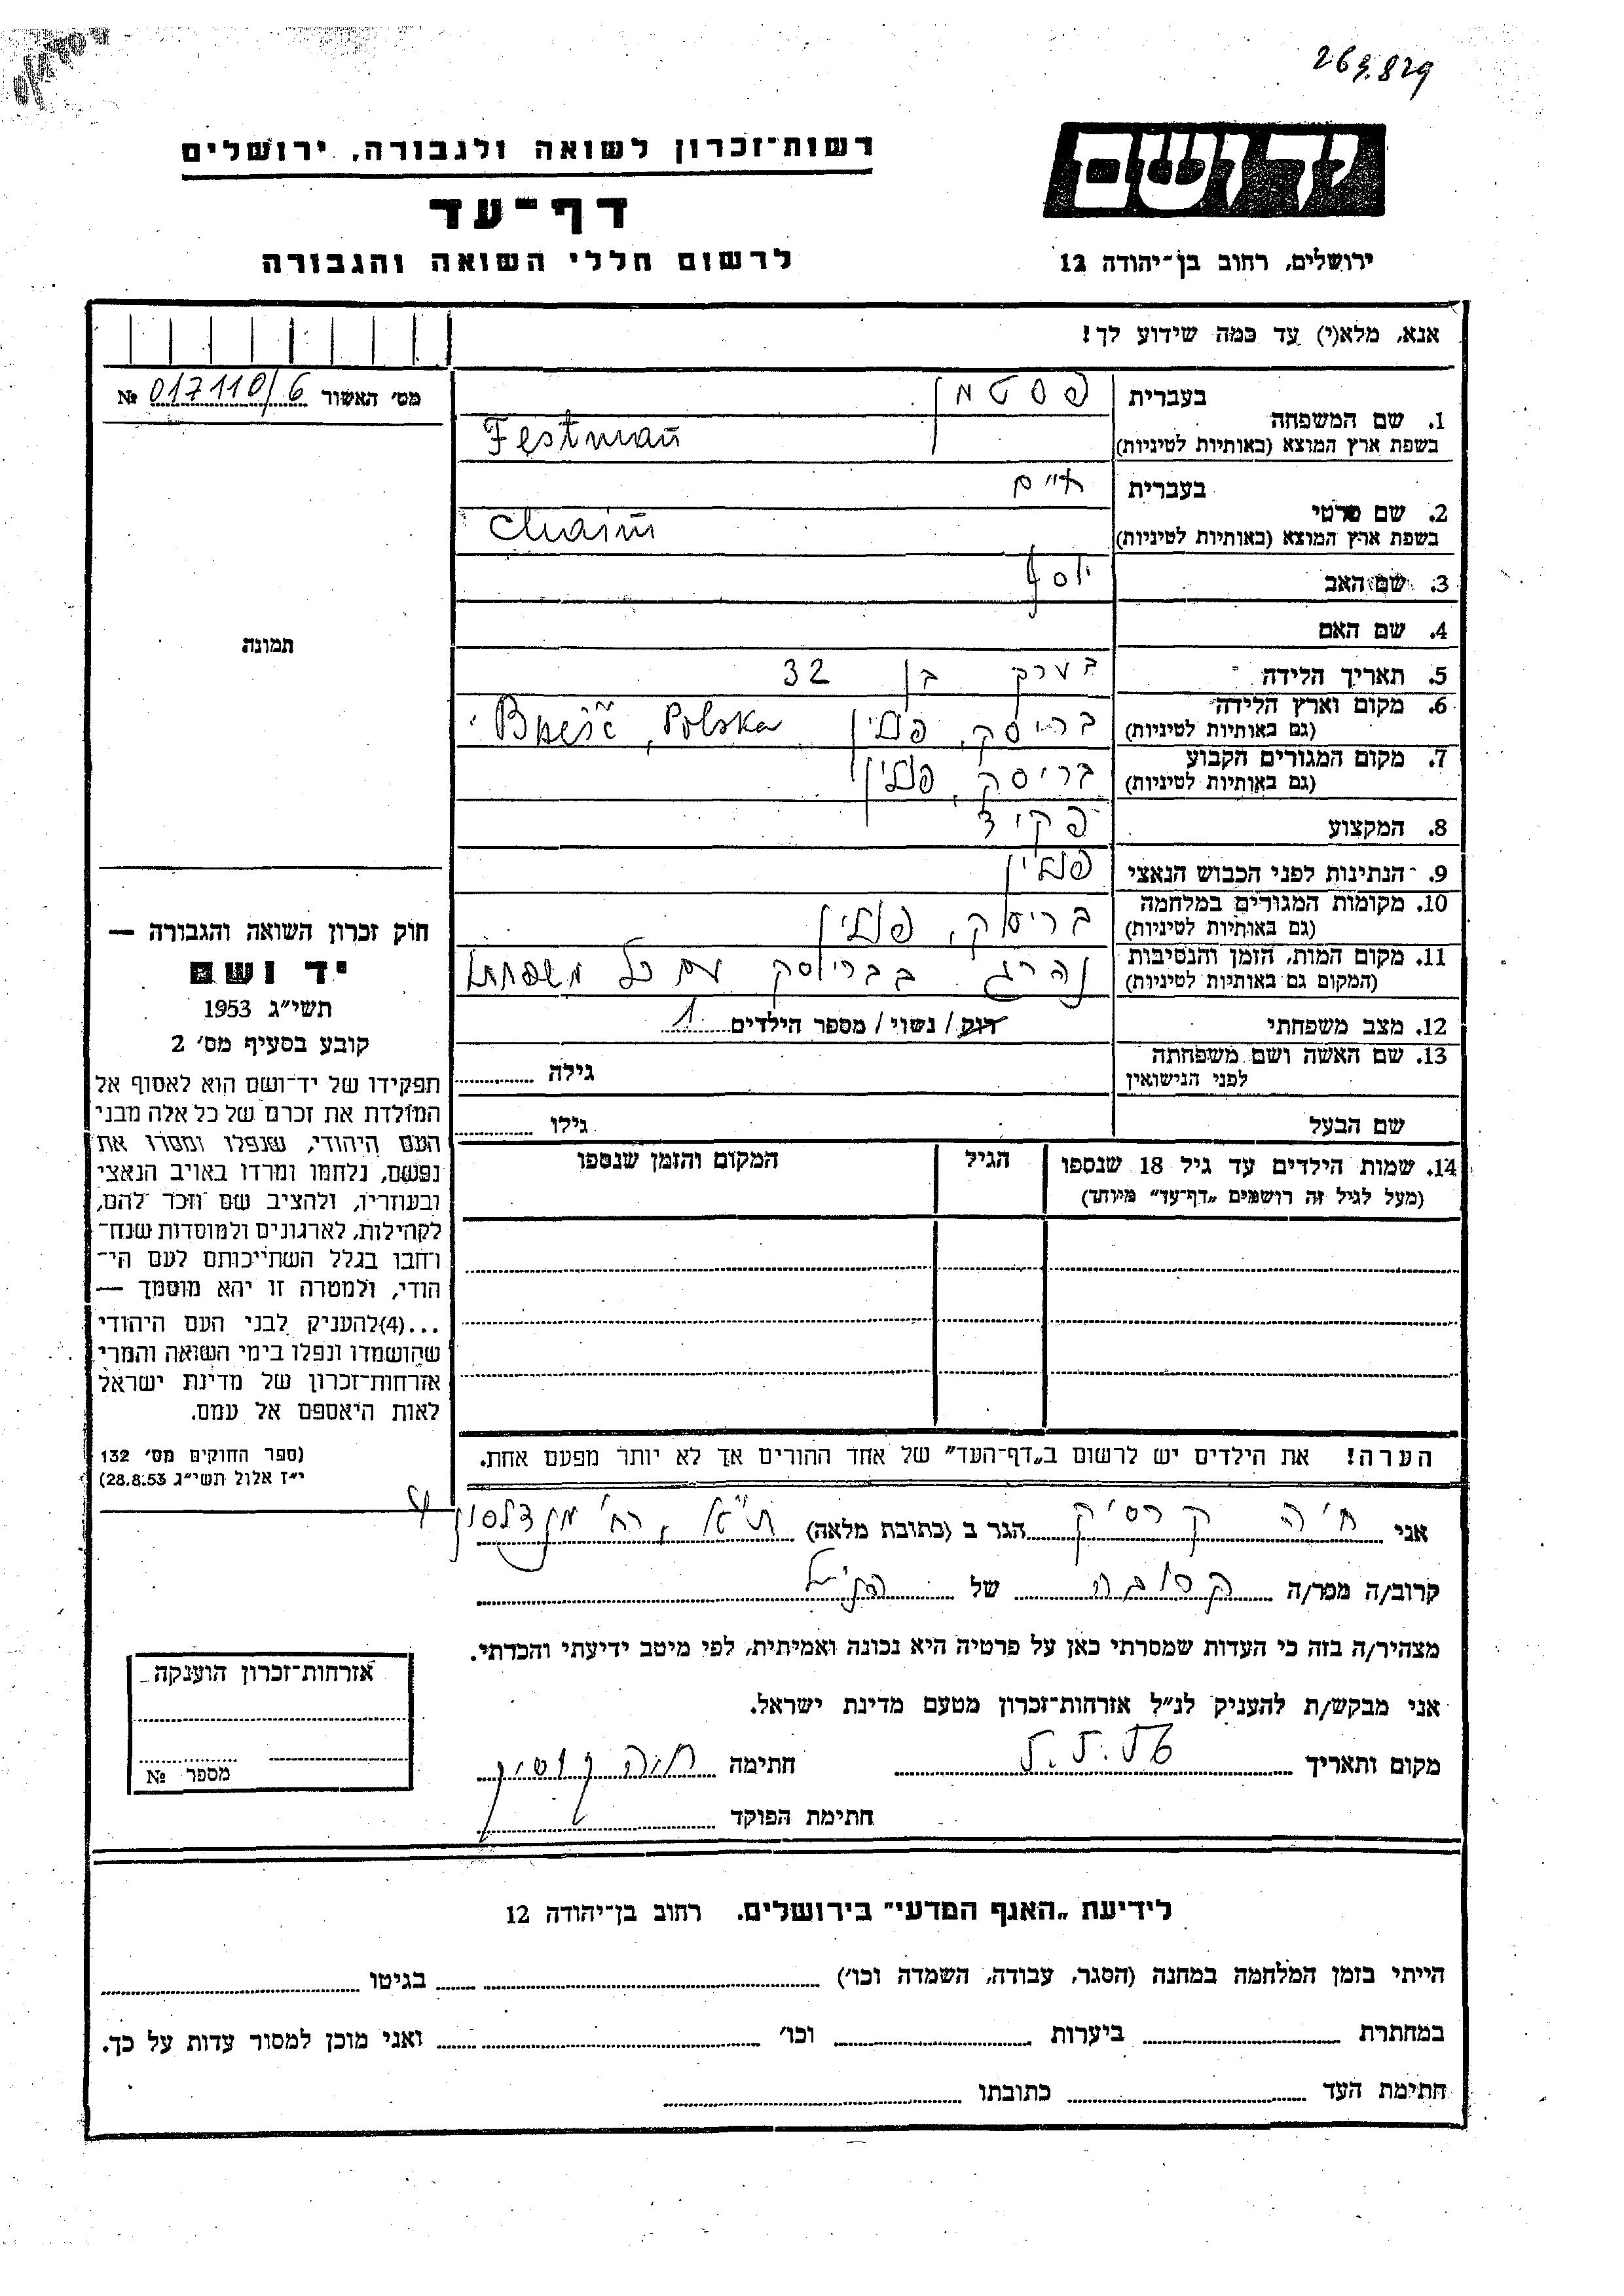 263.829
רשות־זכרון לשואה ולגבורה, ירושלים
יד ושם
דף־עד
לרשום חללי השואה והגבורה
ירושלים, רחוב בן־יהודה 12
אנא, מלא(י) עד כמה שידוע לך!
מס' האשור № 017110/6
1. שם המשפחה
בעברית פסטמן
בשפת ארץ המוצא (באותיות לטיניות) Festman
2. שם פרטי
בעברית חיים
בשפת ארץ המוצא (באותיות לטיניות) Chaim
3. שם האב יוסף
4. שם האם
תמונה
5. תאריך הלידה בערך בן 32
6. מקום וארץ הלידה
(גם באותיות לטיניות) בריסק, פולין Brześć, Polska
7. מקום המגורים הקבוע
(גם באותיות לטיניות) בריסק, פולין
8. המקצוע פקיד
9. הנתינות לפני הכבוש הנאצי פולין
10. מקומות המגורים במלחמה
(גם באותיות לטיניות) בריסק, פולין
11. מקום המות, הזמן והנסיבות
(המקום גם באותיות לטיניות) נהרג בבריסק עם כל משפחתו
12. מצב משפחתי רווק / נשוי / מספר הילדים 1
13. שם האשה ושם משפחתה
לפני הנישואין
גילה
שם הבעל
גילו
14. שמות הילדים עד גיל 18 שנספו
(מעל לגיל זה רושמים „דף־עד" מיוחד)
הגיל
המקום והזמן שנספו
הערה! את הילדים יש לרשום ב„דף־העד" של אחד ההורים אך לא יותר מפעם אחת.
חוק זכרון השואה והגבורה —
יד ושם
תשי"ג 1953
קובע בסעיף מס' 2
תפקידו של יד־ושם הוא לאסוף אל
המולדת את זכרם של כל אלה מבני
העם היהודי, שנפלו ומסרו את
נפשם, נלחמו ומרדו באויב הנאצי
ובעוזריו, ולהציב שם וזכר להם,
לקהילות, לארגונים ולמוסדות שנח־
רבו בגלל השתייכותם לעם הי־
הודי, ולמטרה זו יהא מוסמך —
...(4) להעניק לבני העם היהודי
שהושמדו ונפלו בימי השואה והמרי
אזרחות־זכרון של מדינת ישראל
לאות היאספם אל עמם.
(ספר החוקים מס' 132
י"ז אלול תשי"ג 28.8.53)
אני חיה קרסיק הגר ב (כתובת מלאה) ת"א, רח' מנדלסון 4
קרוב/ה מכר/ה קרובה של הנ"ל
מצהיר/ה בזה כי העדות שמסרתי כאן על פרטיה היא נכונה ואמיתית, לפי מיטב ידיעתי והכרתי.
אני מבקש/ת להעניק לנ"ל אזרחות־זכרון מטעם מדינת ישראל.
מקום ותאריך
חתימה
חתימת הפוקד
אזרחות־זכרון הוענקה
מספר №
לידיעת „האגף המדעי" בירושלים. רחוב בן־יהודה 12
הייתי בזמן המלחמה במחנה (הסגר, עבודה, השמדה וכו') בגיטו
במחתרת ביערות וכו' ואני מוכן למסור עדות על כך.
חתימת העד כתובתו